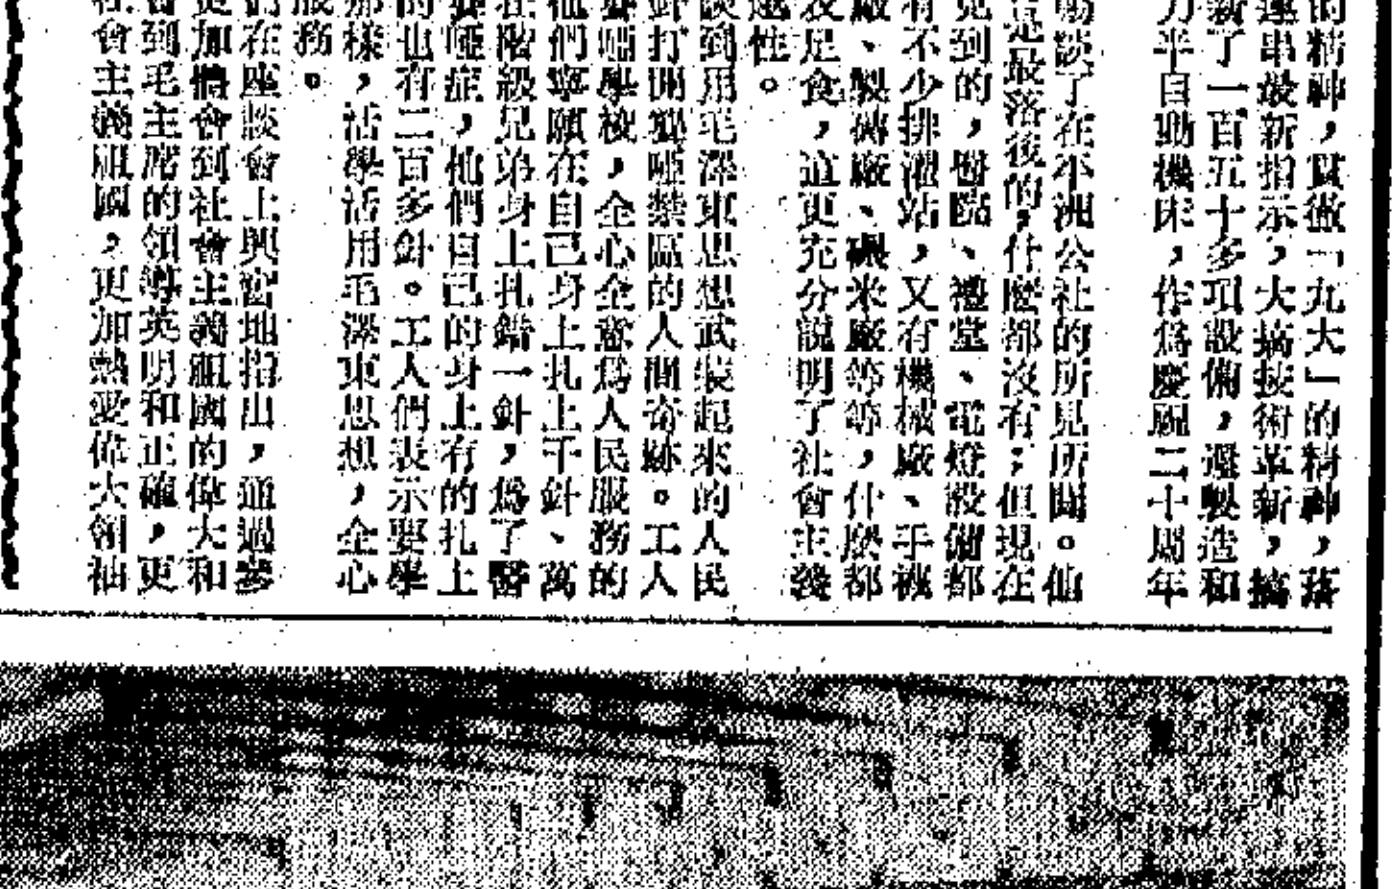 的精神，貫徹「九大」的精神，落
連串最新指示，大搞技術革新，搞
新了一百五十多項設備，還製造和
力半自動機床，作爲慶祝二十周年
動談了在水洲公社的所見所聞。他
是最落後的，什麼都沒有；但現在
見到的，醫院、禮堂、電燈設備都
有不少排灌站，又有機械廠、手襪
廠、製磚廠、碾米廠等等，什麼都
衣足食，這更充分說明了社會主義
越性。
談到用毛澤東思想武裝起來的人民
針打開聾啞禁區的人間奇跡。工人
聾啞學校，全心全意爲人民服務的
他們寧願在自己身上扎上千針、萬
在階級兄弟身上扎錯一針，爲了醫
聾啞症，他們自己的身上有的扎上
的也有二百多針。工人們表示要學
那樣，活學活用毛澤東思想，全心
服務。
們在座談會上興奮地指出，通過參
更加體會到社會主義祖國的偉大和
會到毛主席的領導英明和正確，更
社會主義祖國，更加熱愛偉大領袖